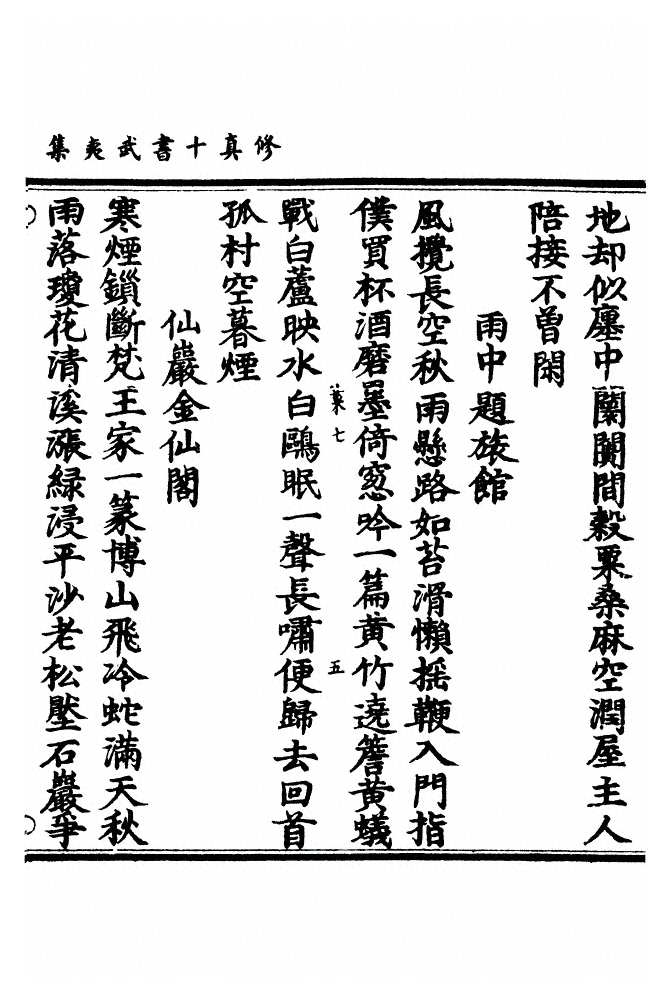 修真十書武夷集
地却似廛中闤闠間榖粟桑麻空潤屋主人
陪接不曾閑
雨中題旅館
風攪長空秋雨懸路如苔滑懶摇鞭入門指
僕買杯酒磨墨倚窓吟一篇黄竹遶簷黄蟻
菓七 五
戰白蘆映水白鷗眠一聲長嘯便歸去回首
孤村空暮煙
仙巖金仙閣
寒煙鎻斷梵王家一篆博山飛冷蛇滿天秋
雨落瓊花清溪漲緑浸平沙老松壓石巖爭